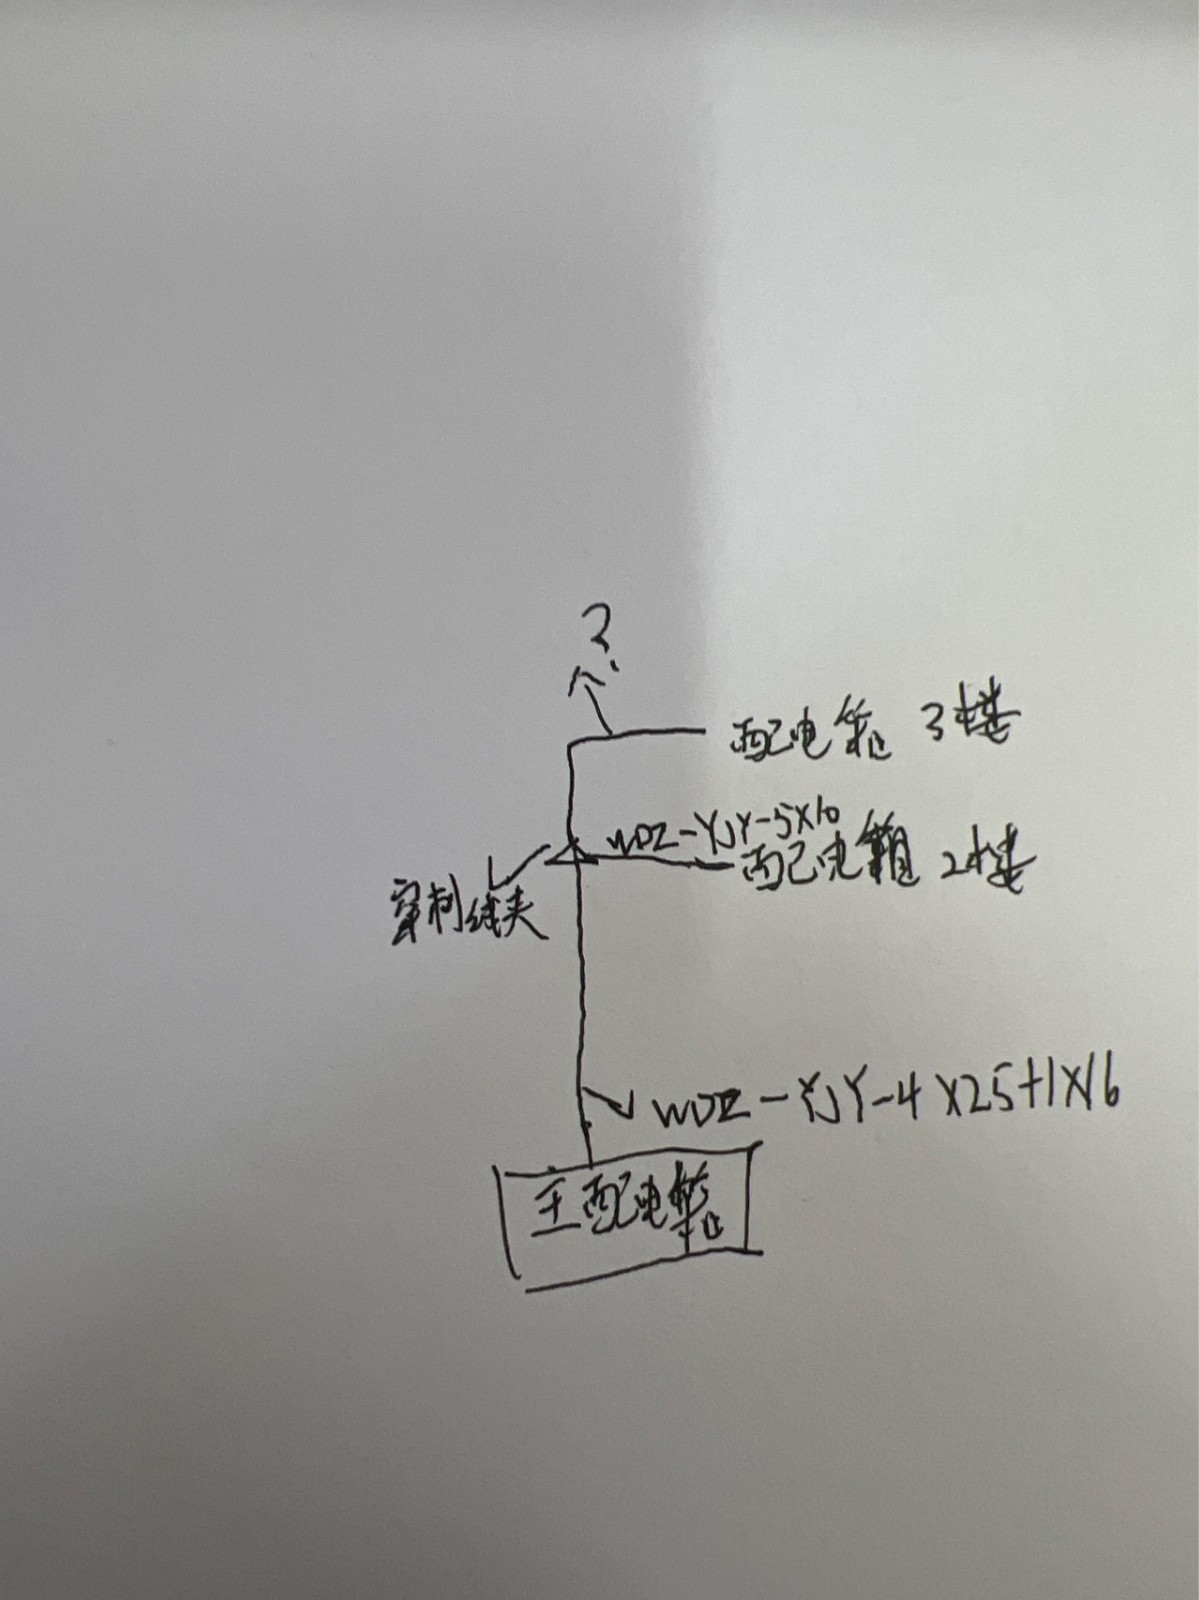 ?
配电箱 3楼
WDZ-YJY-5X10
配电箱 2楼
穿刺线夹
WDZ-YJY-4X25+1X16
主配电箱